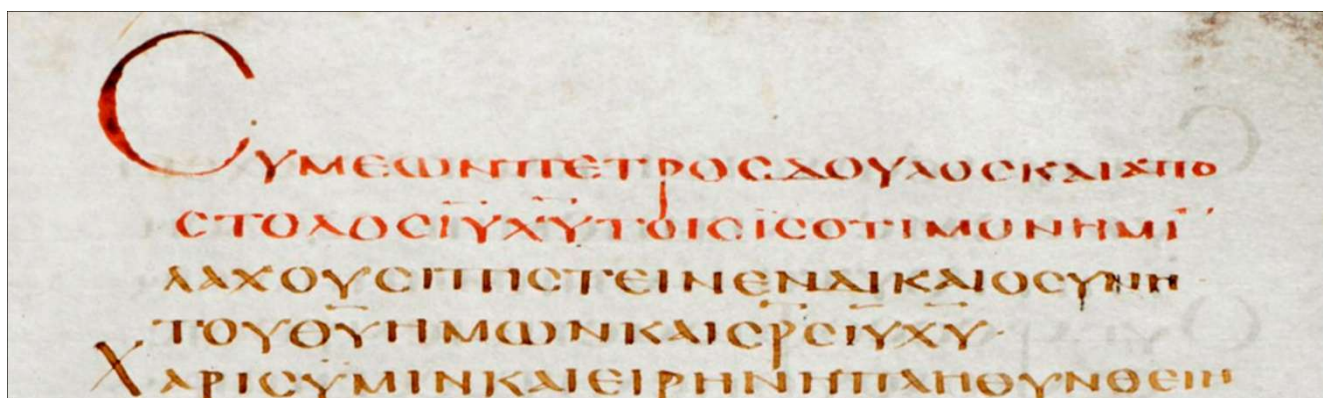 ϹΥΜΕΩΝΠΕΤΡΟϹΔΟΥΛΟϹΚΑΙΑΠΟ
ϹΤΟΛΟϹΙ̅Υ̅Χ̅Υ̅ΤΟΙϹΪϹΟΤΙΜΟΝΗΜΙ̅
ΛΑΧΟΥϹΙΠΙϹΤΕΙΝΕΝΔΙΚΑΙΟϹΥΝΗ
ΤΟΥΘ̅Υ̅ΗΜΩΝΚΑΙϹ̅Ρ̅Ϲ̅Ι̅Υ̅Χ̅Υ̅·
ΧΑΡΙϹΫΜΙΝΚΑΙΕΙΡΗΝΗΠΛΗΘΥΝΘΕΙΗ